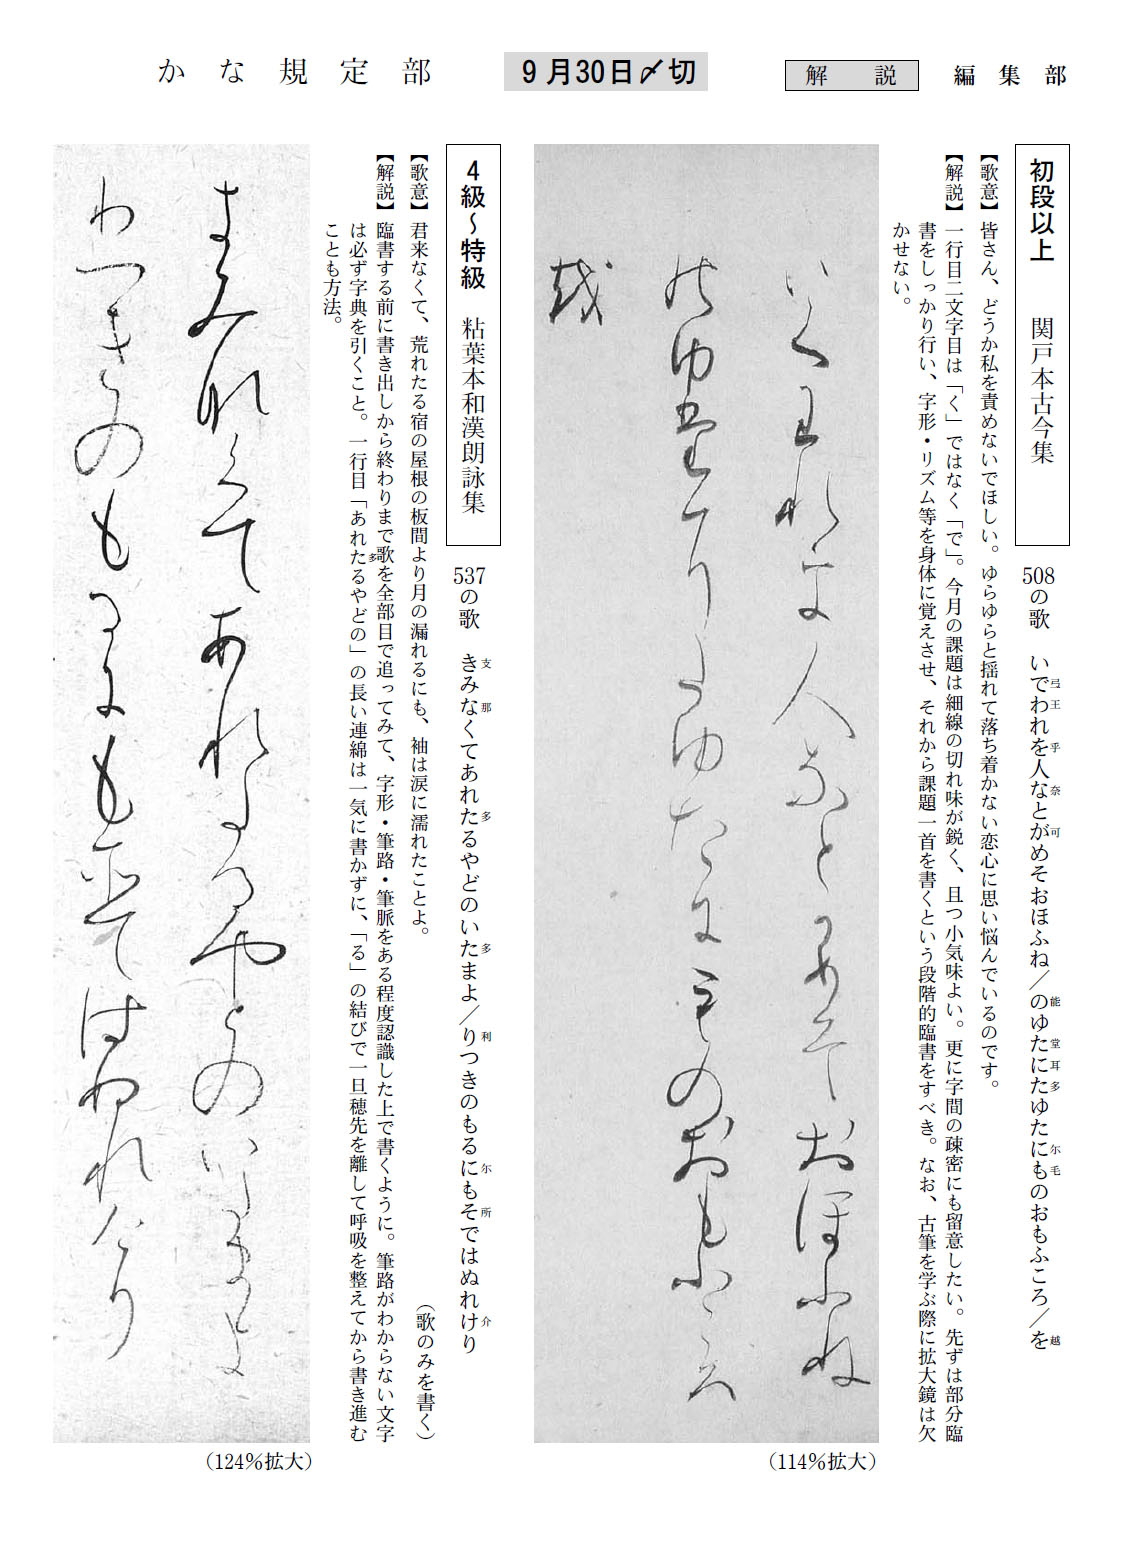 かな規定部
9月30日〆切
解説
編集部
初段以上 関戸本古今集
508の歌 いでわれを人なとがめそおほふね／のゆたにたゆたにものおもふころ／を
弖王 乎 奈 可 能 堂耳多 尓毛 越
【歌意】皆さん、どうか私を責めないでほしい。ゆらゆらと揺れて落ち着かない恋心に思い悩んでいるのです。
【解説】一行目二文字目は「く」ではなく「で」。今月の課題は細線の切れ味が鋭く、且つ小気味よい。更に字間の疎密にも留意したい。先ずは部分臨
書をしっかり行い、字形・リズム等を身体に覚えさせ、それから課題一首を書くという段階的臨書をすべき。なお、古筆を学ぶ際に拡大鏡は欠
かせない。
いて王れ乎人奈とかめそおほふね
能ゆ堂耳多ゆたに毛のおもふころ
越
（114％拡大）
4級～特級 粘葉本和漢朗詠集
537の歌 きみなくてあれたるやどのいたまよ／りつきのもるにもそではぬれけり
支 那 多 多 利 尓 所 介
（歌のみを書く）
【歌意】君来なくて、荒れたる宿の屋根の板間より月の漏れるにも、袖は涙に濡れたことよ。
【解説】臨書する前に書き出しから終わりまで歌を全部目で追ってみて、字形・筆路・筆脈をある程度認識した上で書くように。筆路がわからない文字
は必ず字典を引くこと。一行目「あれたるやどの」の長い連綿は一気に書かずに、「る」の結びで一旦穂先を離して呼吸を整えてから書き進む
多
ことも方法。
支み那くてあれ多るやとのい多まよ
利つきのもる尓も所てはぬれ介り
（124％拡大）